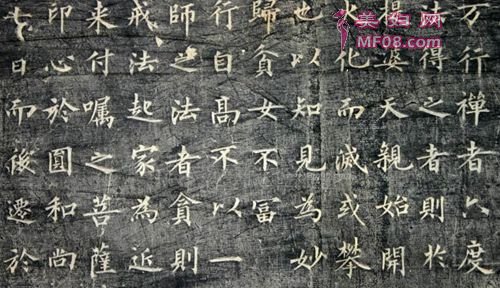 万行禪者六度
法得之者則於
提婆天親始開
火化而滅或攀
也以知見為妙
歸貧女不富
行自高不以一
師之法者貪則
戒法起家為近
来付囑之菩薩
印心於圓和尚
七日而後遷於
美妇网
MF08.com